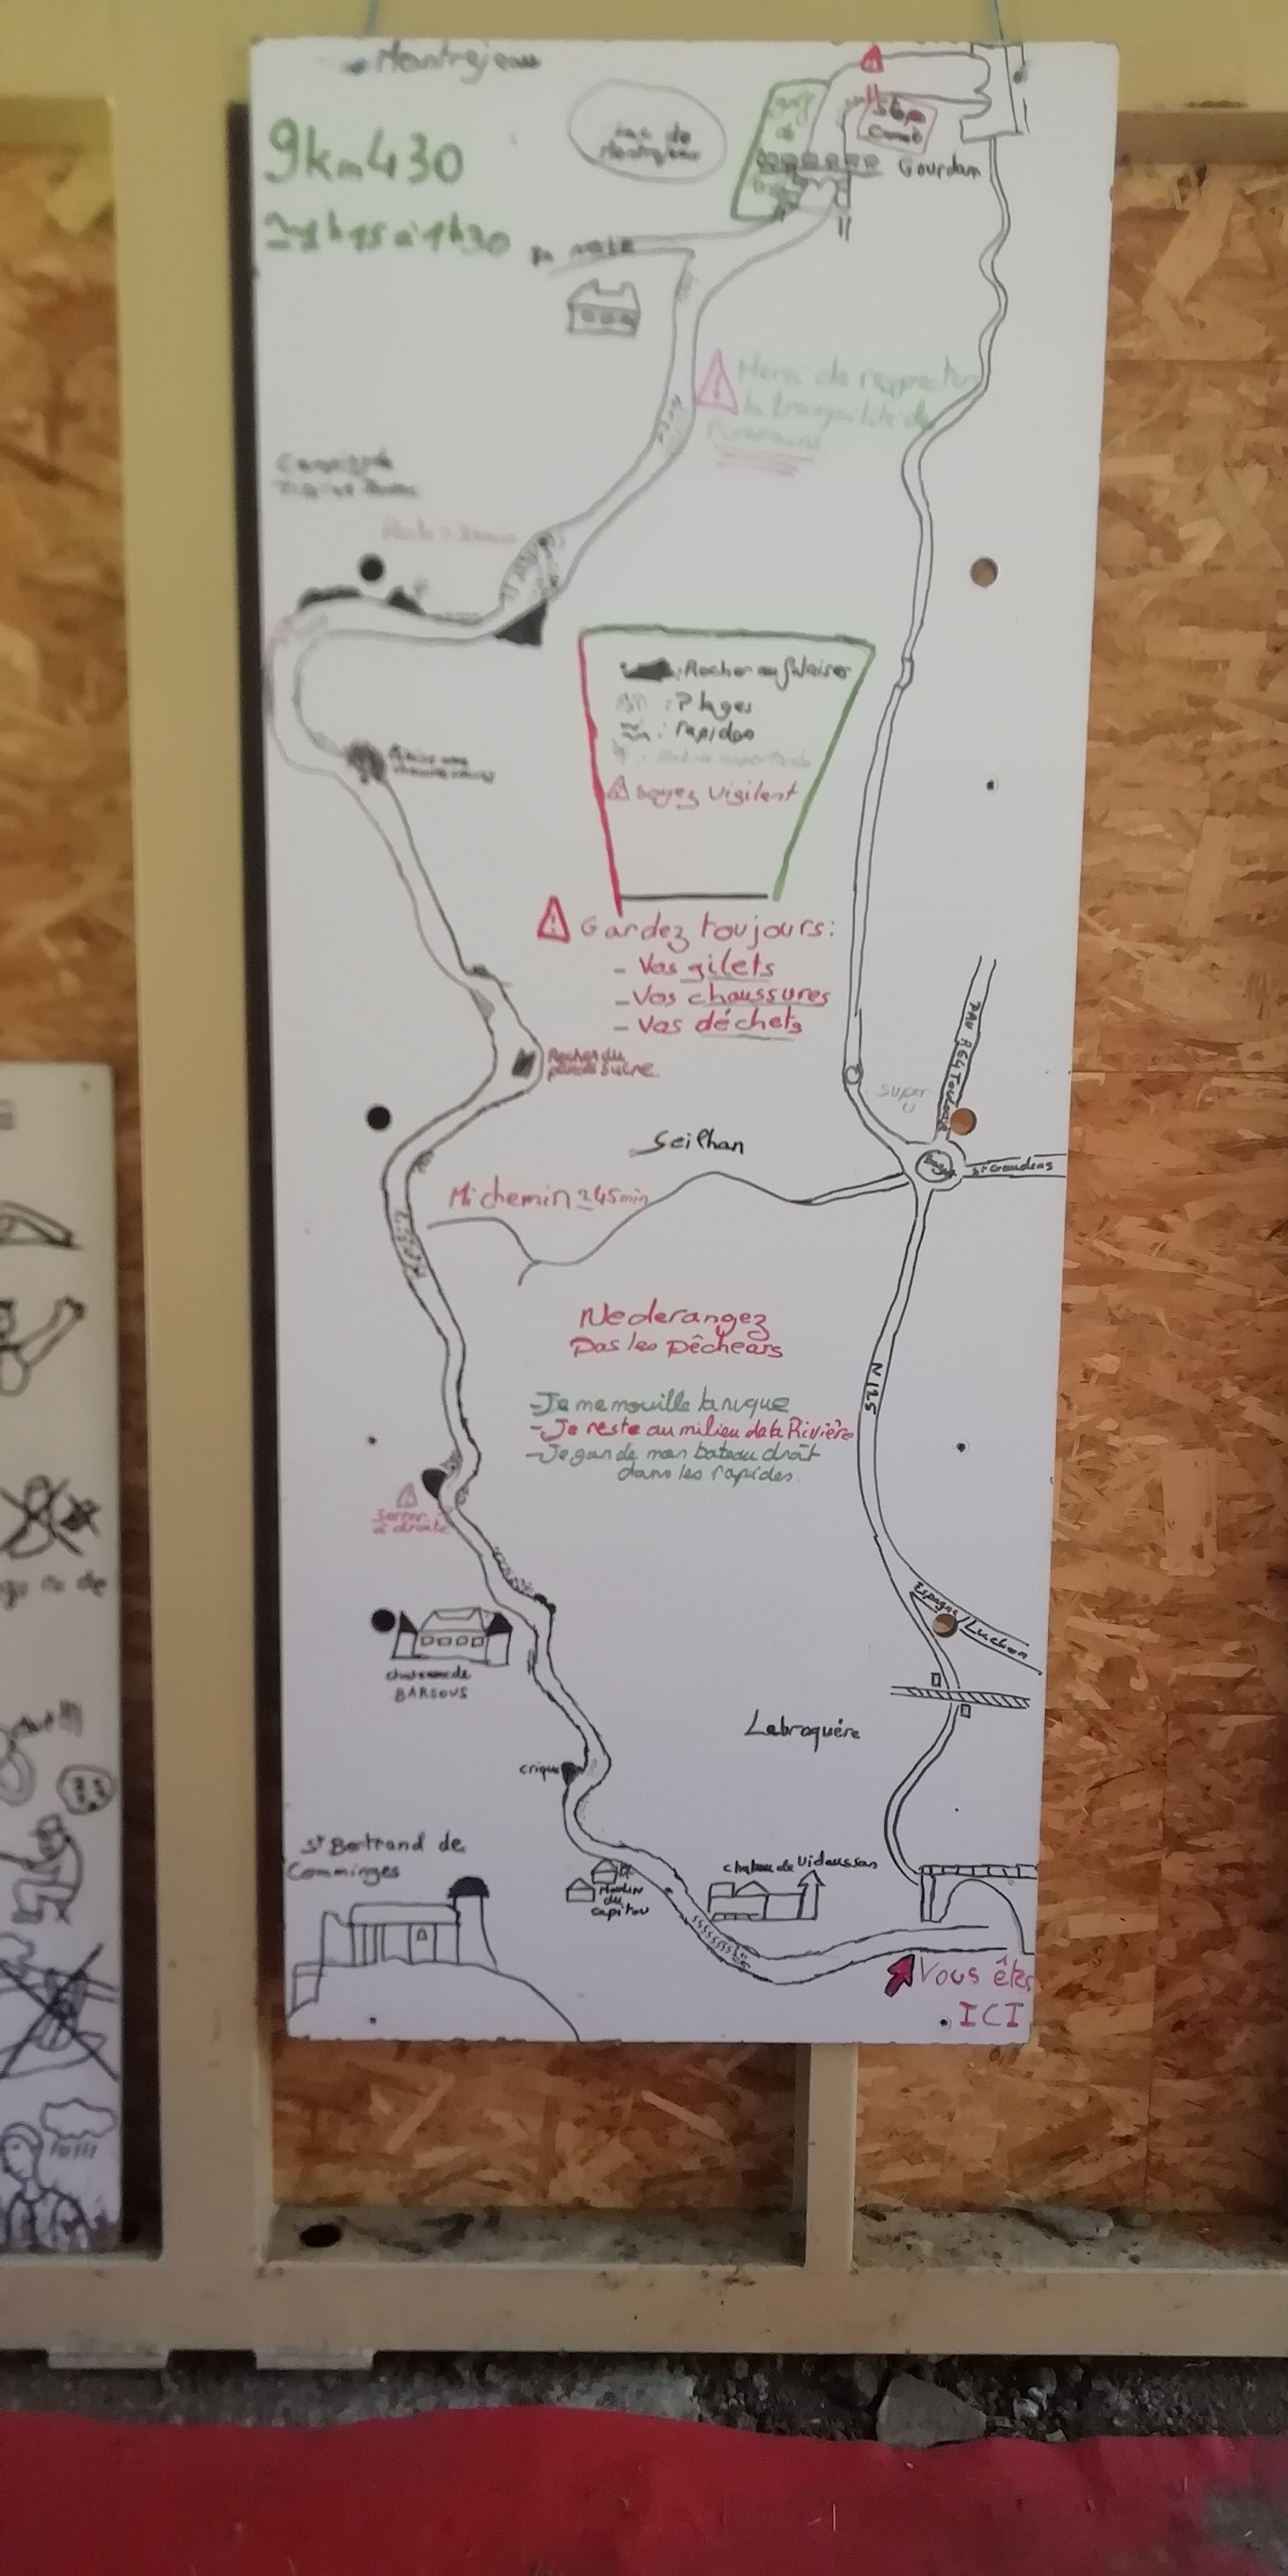 Montrejeau
9km430
≃ 1h15 à 1h30
Lac de
Montrejeau
Stop
Canoë
Gourdan
Merci de respecter
la tranquilité des
Riverains
Camping de
Rocher ou falaises
: Plages
: rapides
Soyez Vigilent
Gardez toujours:
- Vos gilets
- Vos chaussures
- Vos déchets
Rocher du
pain de sucre
PAU A64 Toulouse
Super
U
Seilhan
St Gaudens
Mi chemin ≃ 45min
Ne derangez
Pas les Pêcheurs
- Je me mouille la nuque
- Je reste au milieu de la Rivière
- Je garde mon bateau droit
dans les rapides.
N125
Serrer
à droite
Espagne/Luchon
chateau de
BARSOUS
Labroquère
crique
St Bertrand de
Comminges
Moulin
du
Capitou
chateau de Vidaussan
Vous êtes
ICI